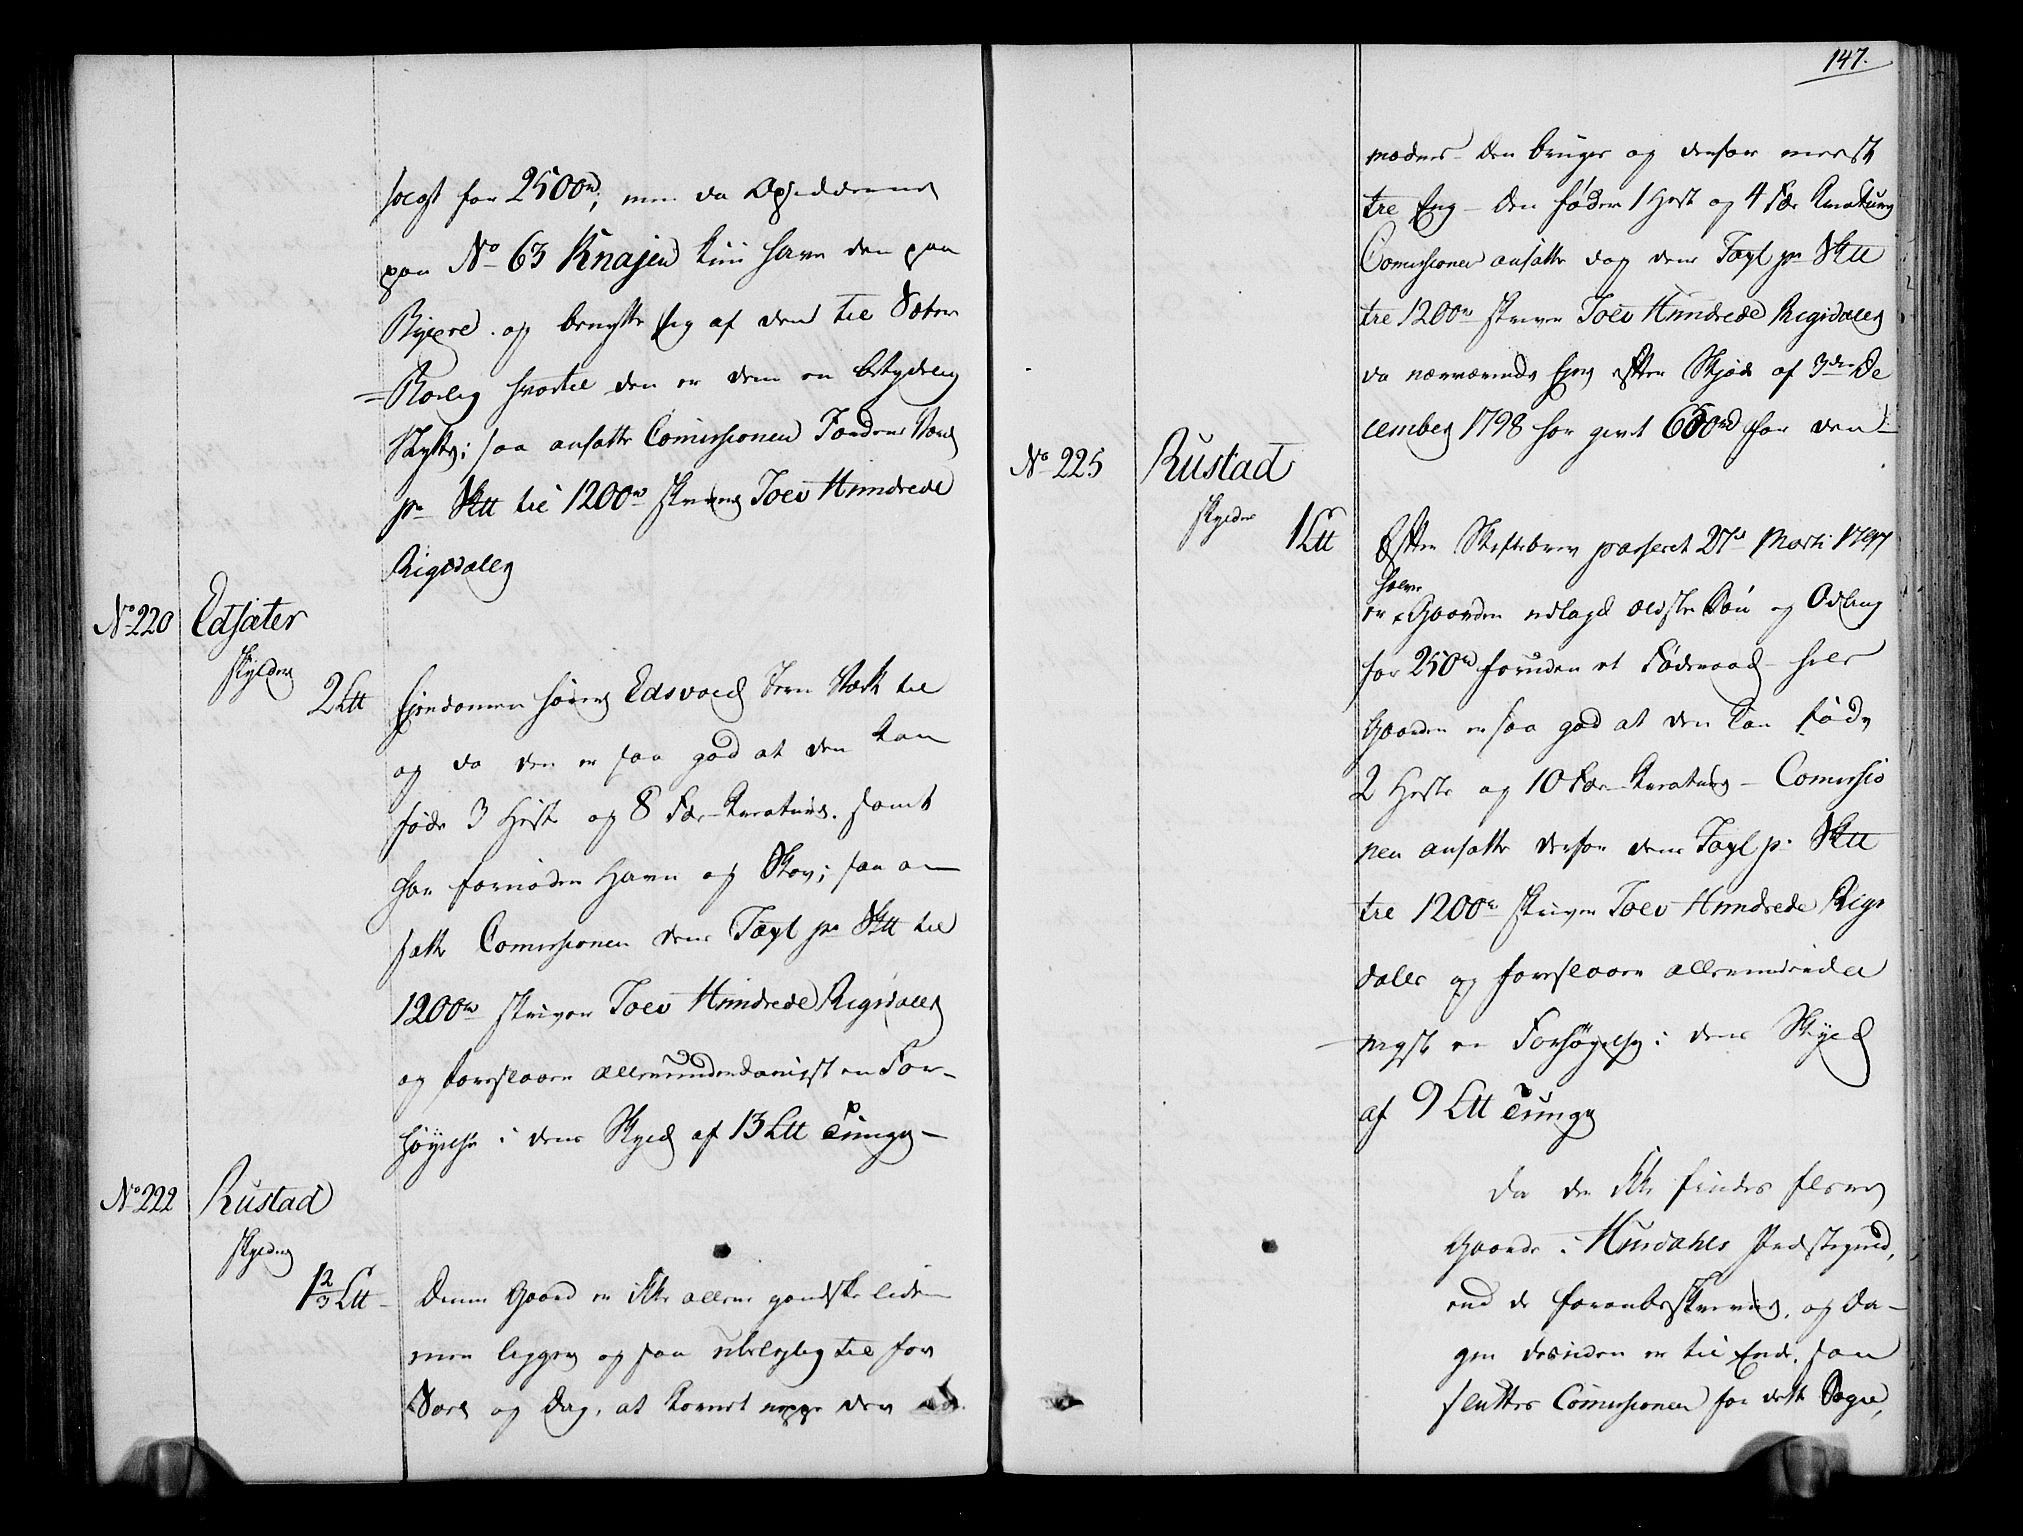 solgt for 2500rd, men da Opsidderne
paa No 63 Knajen kun have den paa
Bygsel og benytte sig af den til Sæter
Bolig hvortil den er dem en betydelig
Nytte; saa ansatte Comissionen Jordens Værd
pr Sktt til 1200rd skriver Tolv Hundrede
Rigsdaler
No 220 Edsæter
skylder
2 Ltt
Ejendommen hører Edsvold Jern Værk til
og da den er saa god at den kan
føde 3 Heste og 8 Fæ-Kreature samt
har fornøden Havn og Skov; saa an
satte Comissionen dens Taxt pr Sktt til
1200rd skriver Tolv Hundrede Rigsdaler
og foreslaaer allerunderdanigst en For-
høyelse i dens Skyld af 13 Ltt Tunge-
No 222 Rustad
skylder
1 2/3 Ltt -
Denne Gaard er ikke allene gandske liden
men ligger og saa ubelejlig til for
Soel og Dag, at Kornet neppe der
147.
modnes - den bruges og derfor meest
til Eng - den føder 1 Hest og 4 Fæ Kreature
Comissionen ansatte dog dens Taxt pr Sktt
til 1200rd skriver Tolv Hundrede Rigsdaler
da nærværende Ejer efter Skjøde af 3die De
cember 1798 har givet 600rd for den -
No 225 Rustad
skylder
1 Ltt
Efter Skiftebrev passeret 27d Marti 1797
halve
er Gaarden udlagt ældste Søn og Odling
for 250rd foruden et Føderaad - hele
Gaarden er saa god at den kan føde
2 Heste og 10 Fæ-Kreature - Comissio
nen ansatte derfor dens Taxt pr Sktt
til 1200rd skriver Tolv Hundrede Rigs
daler og foreslaaer allerunderda
nigst en Forhøyelse i dens Skyld
af 9 Ltt Tunge
Da der ikke findes flere
Gaarde i Hurdahls Præstegield,
end de foranbeskrevne, og Da-
gen desuden er til Ende, saa
sluttes Comissionen for dette Sogn,